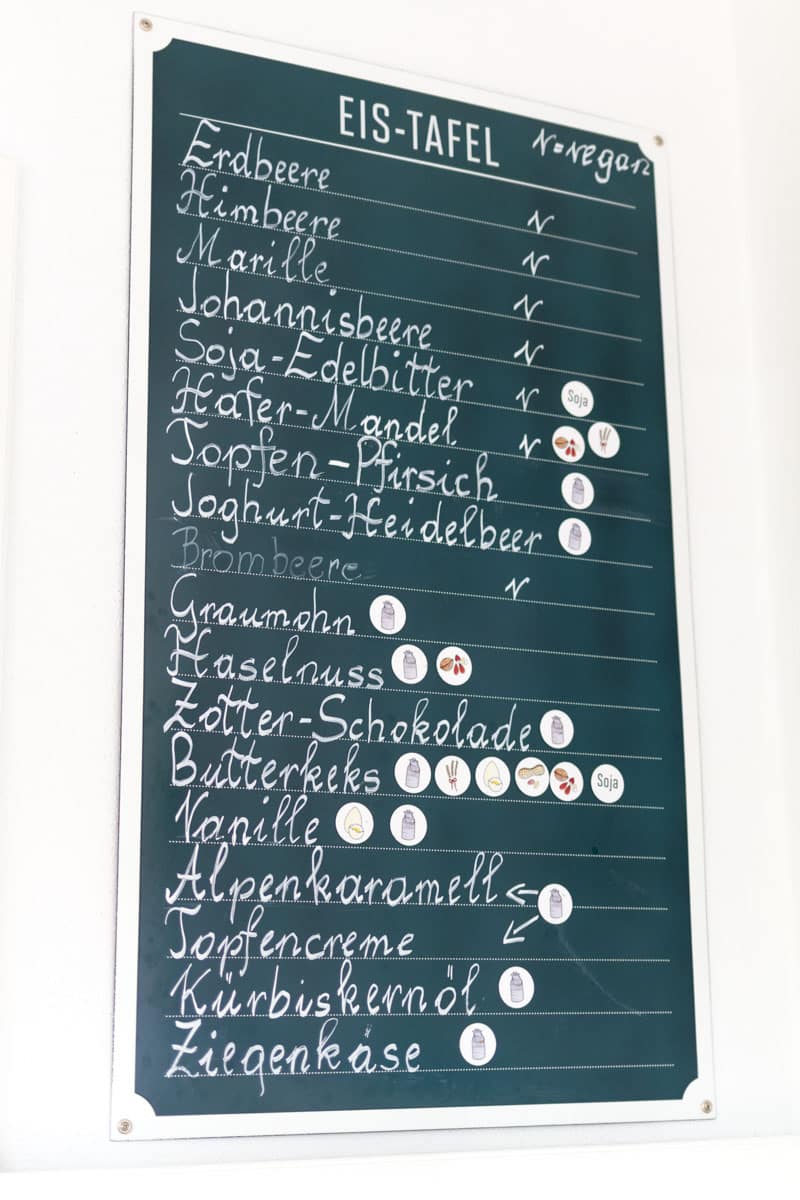 EIS-TAFEL
V=vegan
Erdbeere V
Himbeere V
Marille V
Johannisbeere V
Soja-Edelbitter V Soja
Hafer-Mandel V
Topfen-Pfirsich
Joghurt-Heidelbeer
Brombeere V
Graumohn
Haselnuss
Zotter-Schokolade
Butterkeks Soja
Vanille
Alpenkaramell
Topfencreme
Kürbiskernöl
Ziegenkäse